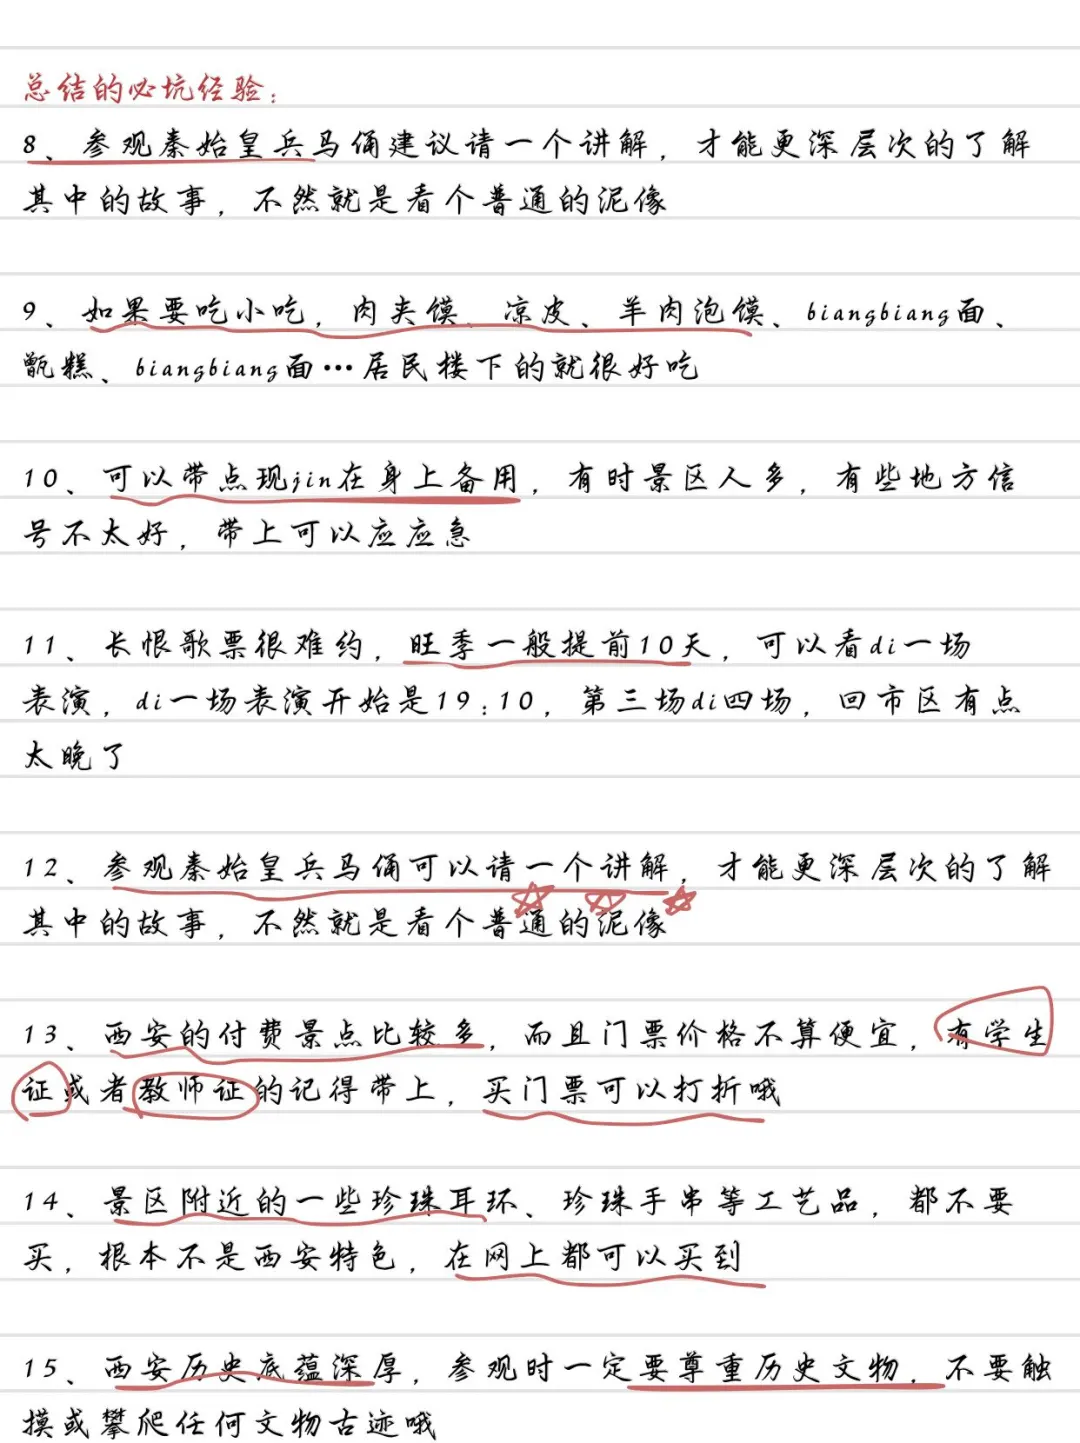 总结的必坑经验：
8、参观秦始皇兵马俑建议请一个讲解，才能更深层次的了解
其中的故事，不然就是看个普通的泥像
9、如果要吃小吃，肉夹馍、凉皮、羊肉泡馍、biangbiang面、
甑糕、biangbiang面…居民楼下的就很好吃
10、可以带点现jin在身上备用，有时景区人多，有些地方信
号不太好，带上可以应应急
11、长恨歌票很难约，旺季一般提前10天，可以看di一场
表演，di一场表演开始是19:10，第三场di四场，回市区有点
太晚了
12、参观秦始皇兵马俑可以请一个讲解，才能更深层次的了解
其中的故事，不然就是看个普通的泥像
13、西安的付费景点比较多，而且门票价格不算便宜，有学生
证或者教师证的记得带上，买门票可以打折哦
14、景区附近的一些珍珠耳环、珍珠手串等工艺品，都不要
买，根本不是西安特色，在网上都可以买到
15、西安历史底蕴深厚，参观时一定要尊重历史文物，不要触
摸或攀爬任何文物古迹哦